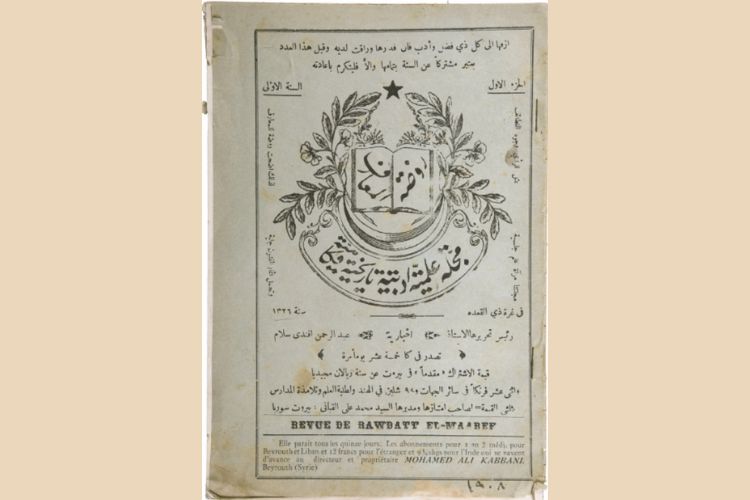 ازفها الى كل ذي فضل وأدب فان قدرها وراقت لديه وقبل هذا العدد
يعتبر مشتركاً عن السنة بتمامها والا فليتكرم باعادته
الجزء الاول
السنة الاولى
روضة المعارف
مجلة علمية ادبية تاريخية فكاهية
في غرة ذي القعده
سنة ١٣٢٦
رئيس تحريرها الاستاذ
اخبارية
عبد الرحمن افندي سلام
تصدر في كل خمسة عشر يوماً مرة
قيمة الاشتراك «مقدماً» في بيروت عن سنة ريالان مجيديا
واثنى عشر فرنكاً في سائر الجهات و٩ شلين في الهند ولطلبة العلم وتلامذة المدارس
ثلثي القيمة = لصاحب امتيازها ومديرها السيد محمد علي القباني : بيروت سوريا
REVUE DE RAWDATT EL-MAAREF
Elle parait tous les quinze jours. Les abonnements pour 1 an 2 médj. pour
Beyrouth et Liban et 12 francs pour l'étranger et 9 pour l'Inde qui se vaient
d'avance au directeur et propriétaire MOHAMED ALI KABBANI.
Beyrouth (Syrie)
١٩٠٨